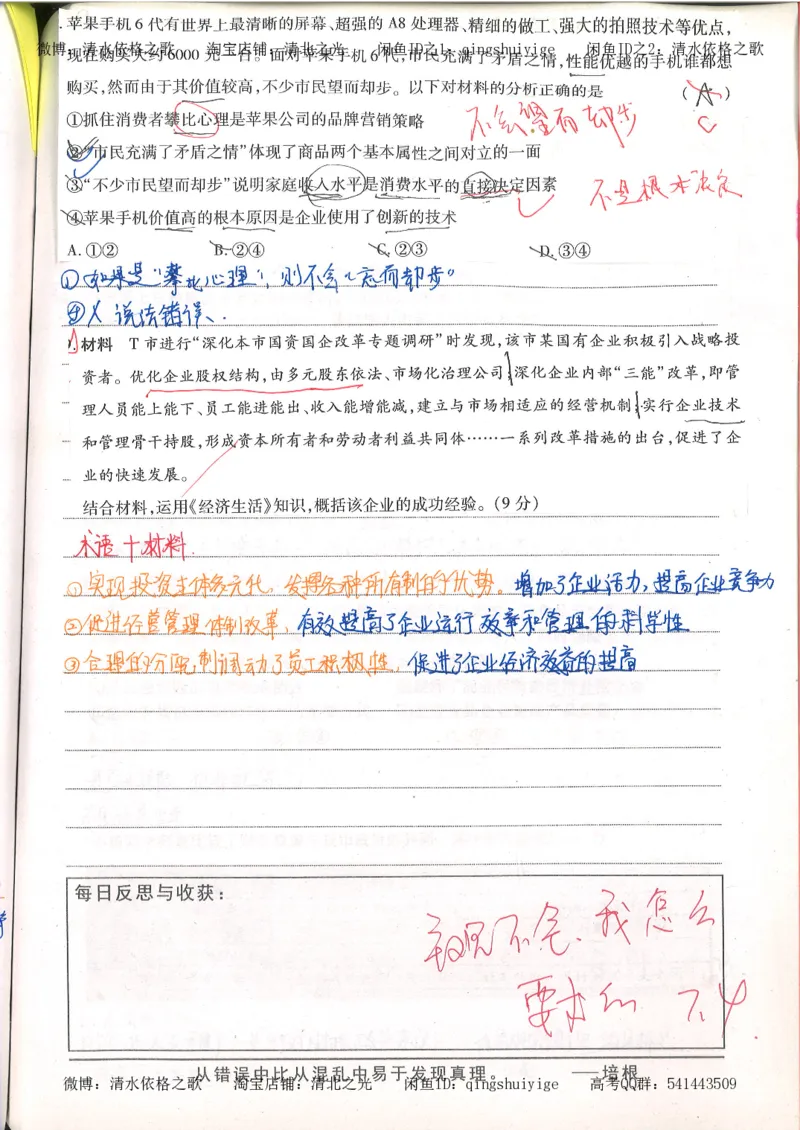 .苹果手机6代有世界上最清晰的屏幕、超强的A8处理器、精细的做工、强大的拍照技术等优点,
微博：清水依格之歌 淘宝店铺：清北之光 闲鱼ID之1：qingshuiyige 闲鱼ID之2：清水依格之歌
现在购买大约6000元一台。面对苹果手机6代,市民充满了矛盾之情,性能优越的手机谁都想
购买,然而由于其价值较高,不少市民望而却步。以下对材料的分析正确的是 ( A )
C
①抓住消费者攀比心理是苹果公司的品牌营销策略
不会望而却步
②“市民充满了矛盾之情”体现了商品两个基本属性之间对立的一面
③“不少市民望而却步”说明家庭收入水平是消费水平的直接决定因素
不是根本决定
④苹果手机价值高的根本原因是企业使用了创新的技术
A.①② B.②④ C.②③ D.③④
①如果是“攀比心理”,则不会“忘而却步”
④X 说法错误、.
材料 T市进行“深化本市国资国企改革专题调研”时发现,该市某国有企业积极引入战略投
资者。优化企业股权结构,由多元股东依法、市场化治理公司;深化企业内部“三能”改革,即管
理人员能上能下、员工能进能出、收入能增能减,建立与市场相适应的经营机制;实行企业技术
和管理骨干持股,形成资本所有者和劳动者利益共同体……一系列改革措施的出台,促进了企
业的快速发展。
结合材料,运用《经济生活》知识,概括该企业的成功经验。(9分)
术语+材料
①实现投资主体多元化,发挥各种所有制的优势。增加了企业活力,提高企业竞争力
②促进经营管理体制改革,有效提高了企业运行效率和管理的科学性
③合理的分配制调动了员工积极性,促进了企业经济效益的提高
每日反思与收获：
我怎么
要求和
从错误中比从混乱中易于发现真理。 ——培根
微博：清水依格之歌 淘宝店铺：清北之光 闲鱼ID：qingshuiyige 高考QQ群：541443509